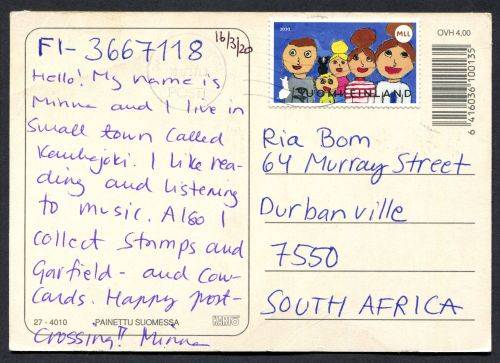 FI-3667118
16/3/20
Hello! My name is
Minna and I live in
small town called
Kauhajoki. I like rea-
ding and listening
to music. Also I
collect stamps and
Garfield- and cow-
cards. Happy post-
crossing!! Minna
27 - 4010 PAINETTU SUOMESSA KARTO
2020
MLL
SUOMI FINLAND
OVH 4,00
6 416036 100135
Ria Bom
64 Murray Street
Durbanville
7550
SOUTH AFRICA